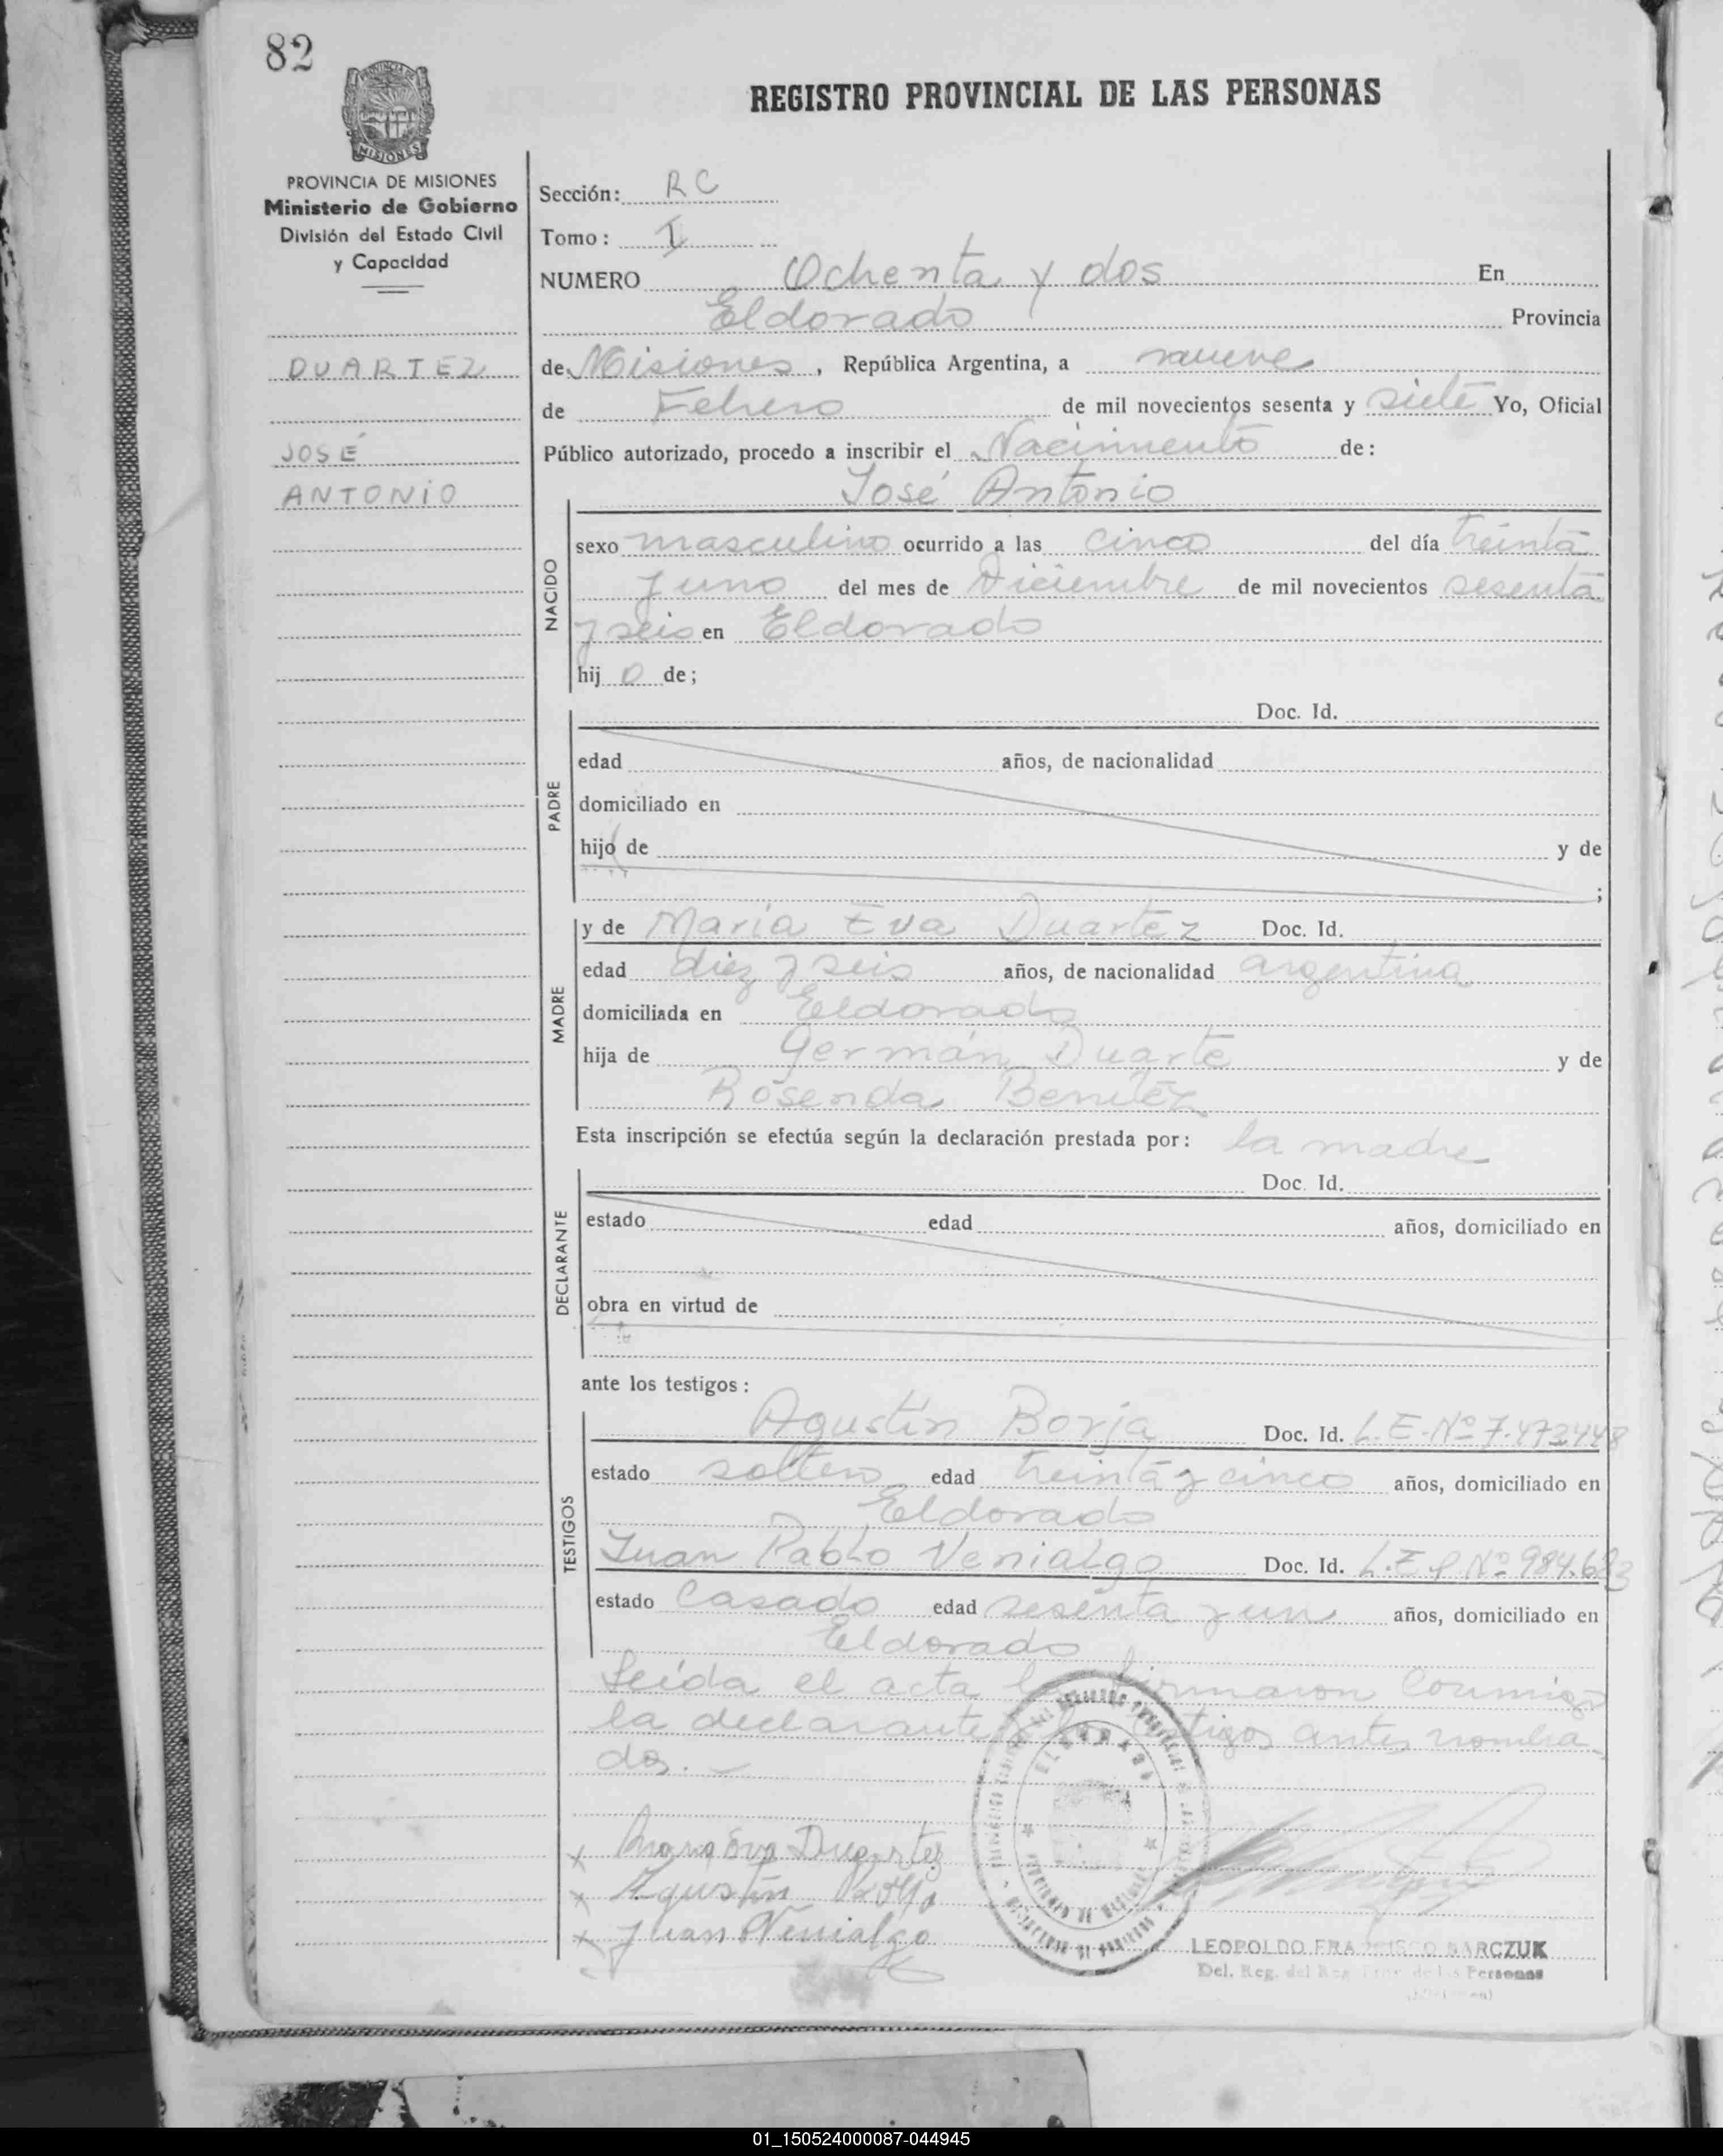 82
REGISTRO PROVINCIAL DE LAS PERSONAS
PROVINCIA DE MISIONES
Ministerio de Gobierno
División del Estado Civil
y Capacidad
DUARTEZ
JOSÉ
ANTONIO
Sección: RC
Tomo: I
NUMERO Ochenta y dos En
Eldorado Provincia
de Misiones, República Argentina, a nueve
de Febrero de mil novecientos sesenta y siete Yo, Oficial
Público autorizado, procedo a inscribir el Nacimiento de:
José Antonio
NACIDO
sexo masculino ocurrido a las cinco del día treinta
y uno del mes de Diciembre de mil novecientos sesenta
y seis en Eldorado
hij o de;
PADRE
Doc. Id.
edad años, de nacionalidad
domiciliado en
hijo de y de
;
MADRE
y de María Eva Duartez Doc. Id.
edad diez y seis años, de nacionalidad argentina
domiciliada en Eldorado
hija de Germán Duarte y de
Rosenda Benítez
Esta inscripción se efectúa según la declaración prestada por: la madre
DECLARANTE
Doc. Id.
estado edad años, domiciliado en
obra en virtud de
ante los testigos:
TESTIGOS
Agustín Borja Doc. Id. L.E.Nº 7.473.448
estado soltero edad treinta y cinco años, domiciliado en
Eldorado
Juan Pablo Venialgo Doc. Id. Nº 984.683
estado Casado edad sesenta y un años, domiciliado en
Eldorado
Leída el acta la firmaron conmigo
la declarante y los testigos antes nombra-
dos.
x Maria Eva Duartez
x Agustín Borja
x Juan Venialgo
ELDORADO
LEOPOLDO FRANCISCO BARCZUK
Del. Reg. del Reg. Prov. de las Personas
01_150524000087-044945